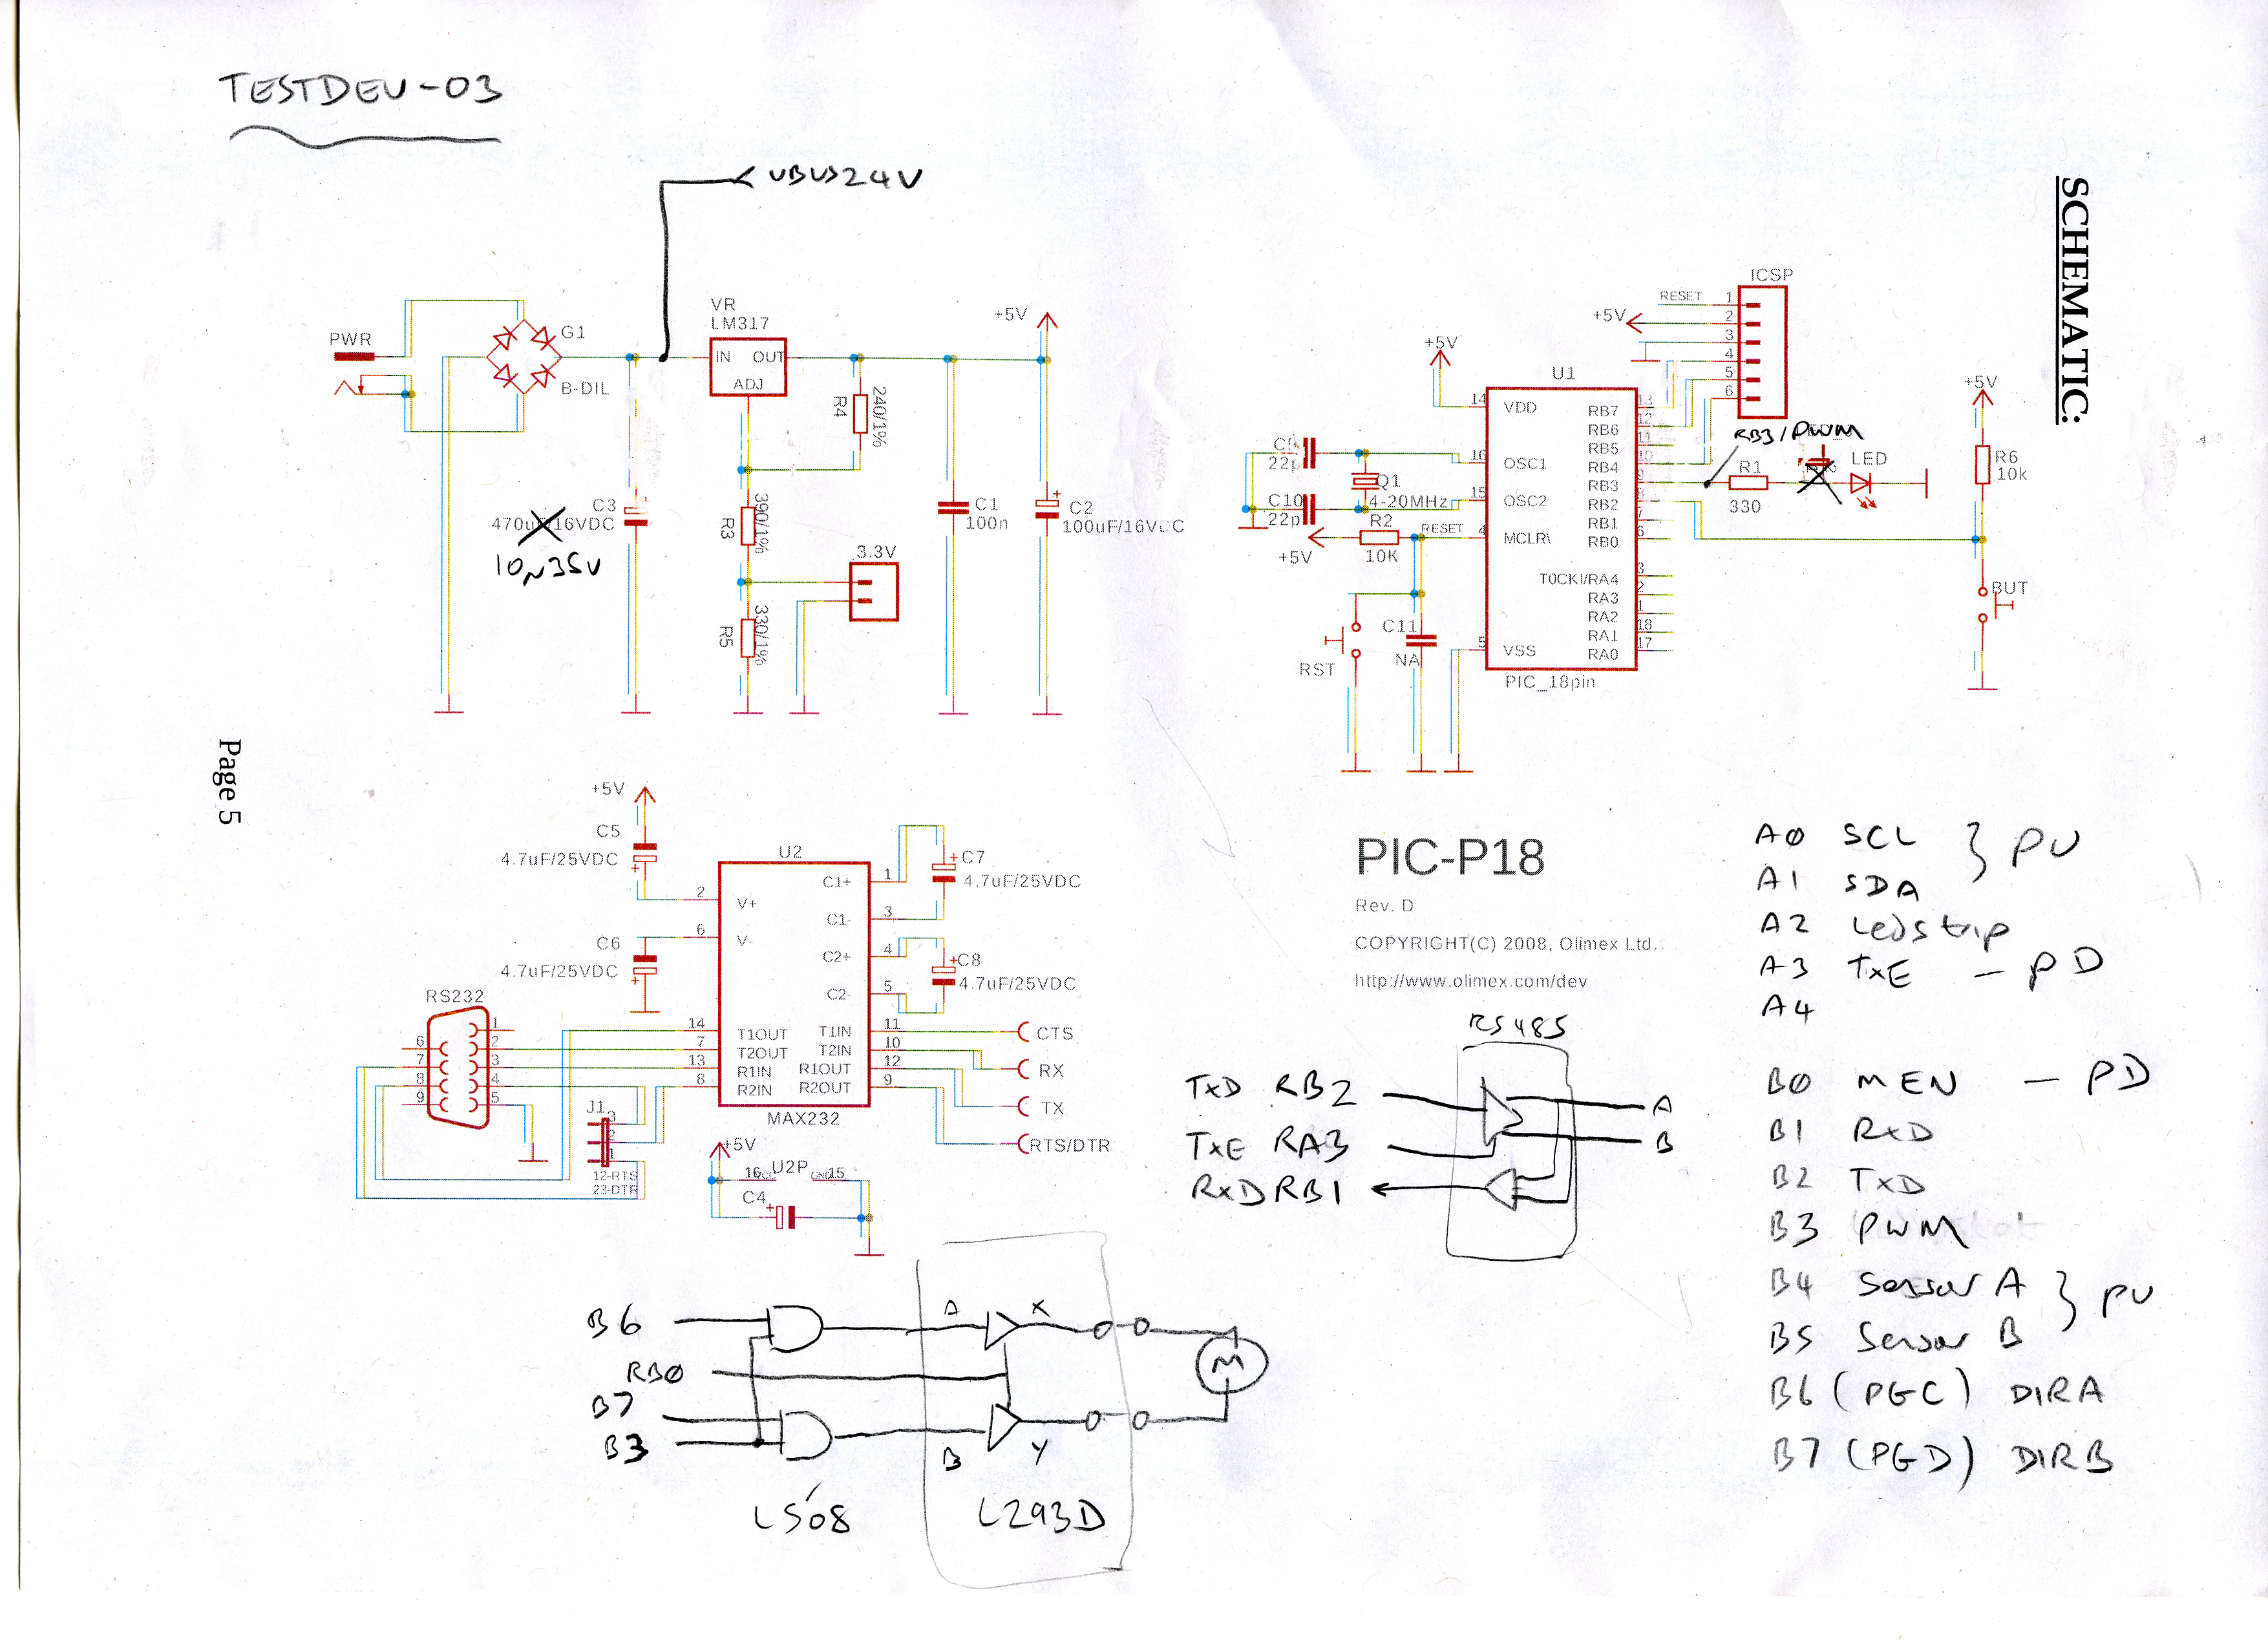 TESTDEV-03
VBUS24V
SCHEMATIC:
Page 5
PWR
G1
B-DIL
VR
LM317
IN OUT
ADJ
R4
240/1%
+5V
C3
470uF/16VDC
10N35V
R3
390/1%
3.3V
R5
330/1%
C1
100n
C2
100uF/16VDC
ICSP
RESET 1
+5V 2
3
4
5
6
+5V
U1
14 VDD
16 OSC1
15 OSC2
4 MCLR\
5 VSS
RB7 13
RB6 12
RB5 11
RB4 10
RB3 9
RB2 8
RB1 7
RB0 6
T0CKI/RA4 3
RA3 2
RA2 1
RA1 18
RA0 17
PIC_18pin
C9
22p
C10
22p
Q1
4-20MHz
R2
10K
RESET
+5V
RST
C11
NA
RB3/PWM
R1
330
LED
+5V
R6
10k
BUT
+5V
C5
4.7uF/25VDC
C6
4.7uF/25VDC
U2
2 V+
6 V-
C1+ 1
C1- 3
C2+ 4
C2- 5
C7
4.7uF/25VDC
C8
4.7uF/25VDC
14 T1OUT T1IN 11 CTS
7 T2OUT T2IN 10 RX
13 R1IN R1OUT 12 TX
8 R2IN R2OUT 9 RTS/DTR
MAX232
RS232
1
6 2
7 3
8 4
9 5
J1
3
2
1
12-RTS
23-DTR
+5V
16 VCC U2P GND 15
C4
PIC-P18
Rev. D
COPYRIGHT(C) 2008, Olimex Ltd.
http://www.olimex.com/dev
RS485
TxD RB2 A
TxE RA3 B
RxD RB1
A0 SCL } PU
A1 SDA
A2 Ledstrip
A3 TxE - PD
A4
B0 MEN - PD
B1 RxD
B2 TxD
B3 PWM
B4 Sensor A } PU
B5 Sensor B
B6 (PGC) DIRA
B7 (PGD) DIRB
B6 A X
RB0 M
B7
B3 B Y
LS08 L293D